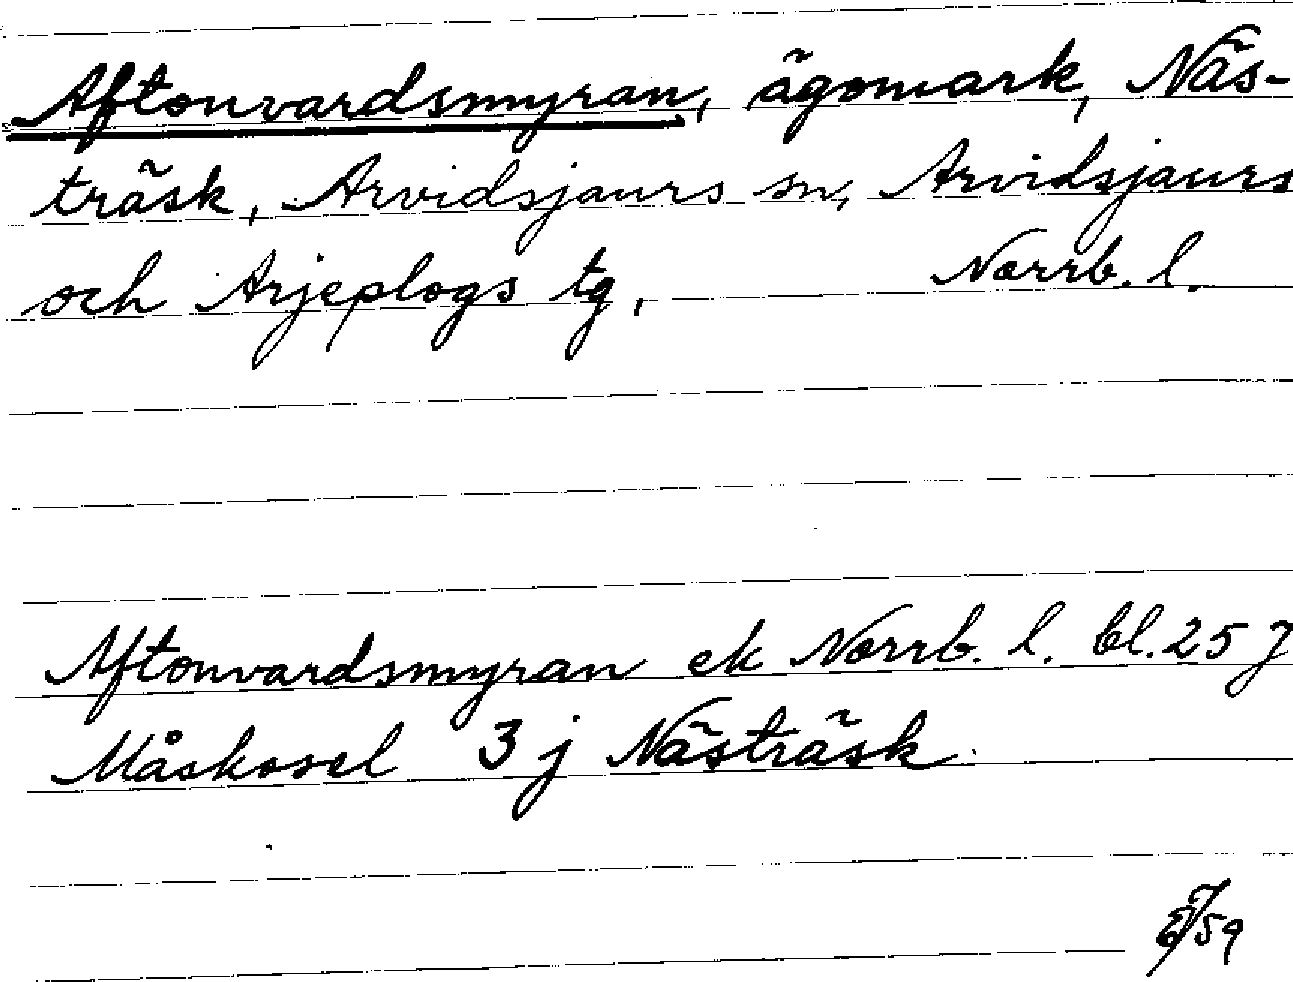 Aftonvardsmyran, ägomark, Näs-
träsk, Arvidsjaurs sn, Arvidsjaurs
och Arjeplogs tg, Norrb. l.
Aftonvardsmyran ek Norrb. l. bl. 25 J
Måskosel 3 j Nästräsk